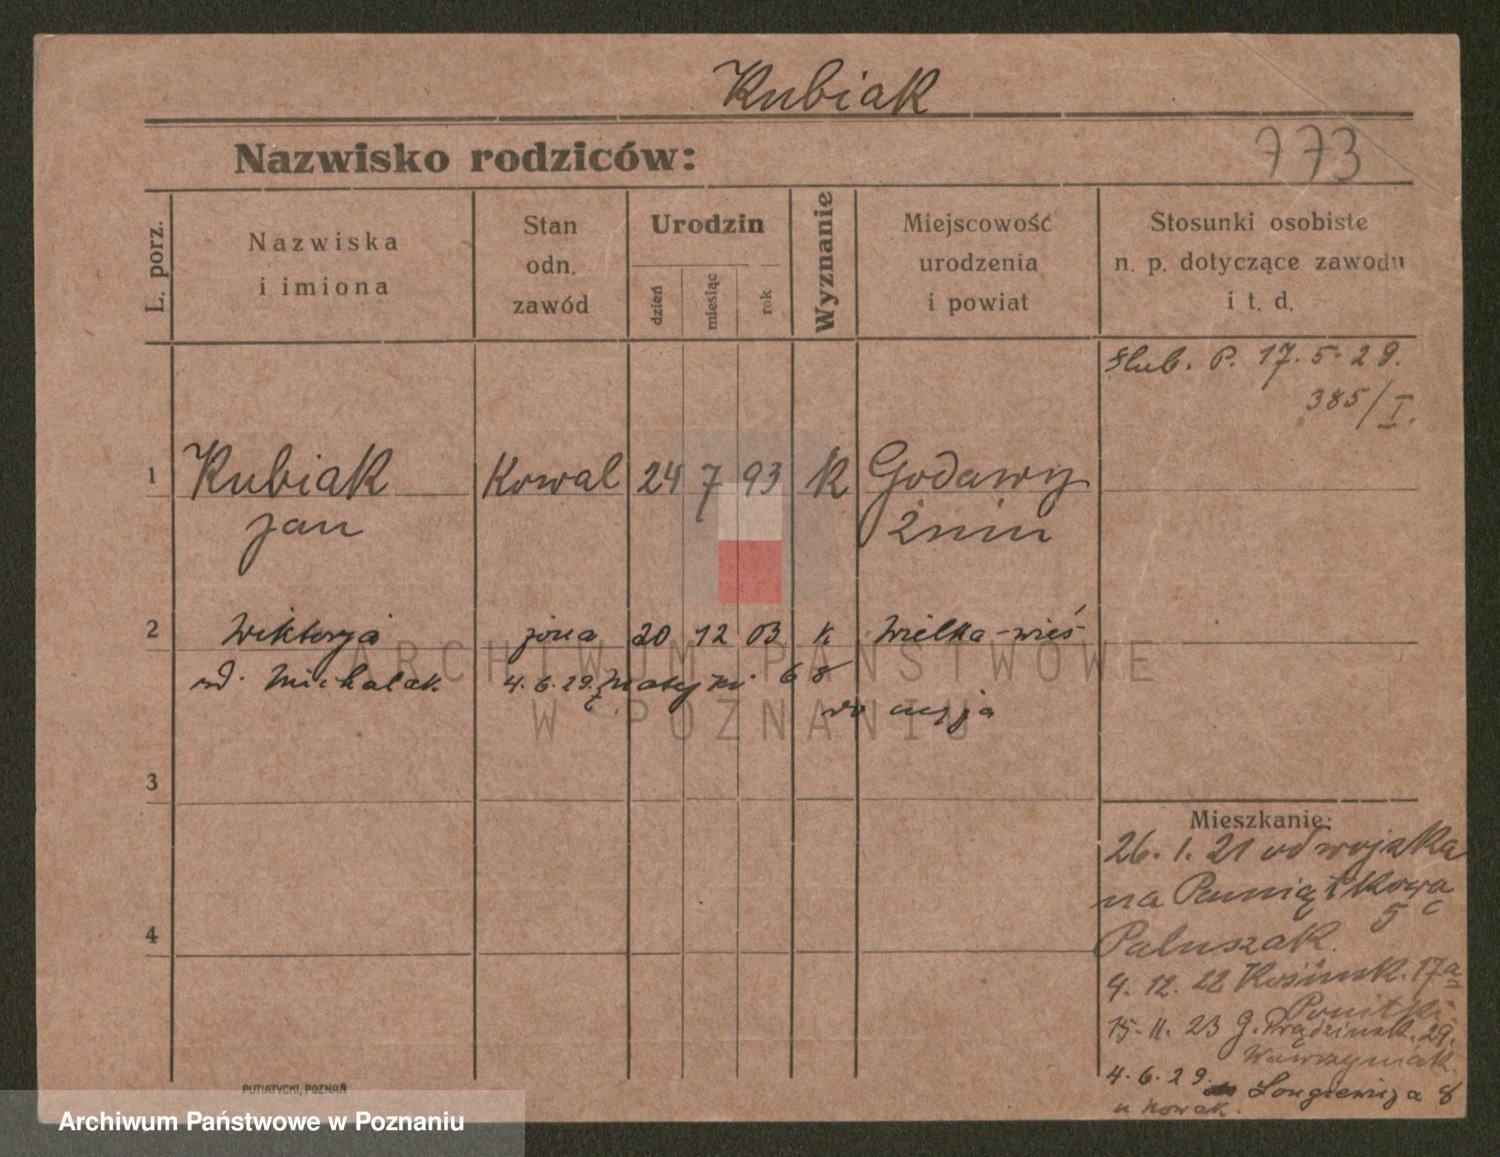 Kubiak
Nazwisko rodziców:
773
L. porz.
Nazwiska
i imiona
Stan
odn.
zawód
Urodzin
dzień
miesiąc
rok
Wyznanie
Miejscowość
urodzenia
i powiat
Stosunki osobiste
n. p. dotyczące zawodu
i t. d.
Ślub. P. 17.5.29.
385/I.
1 Kubiak Kowal 24 7 93 K Godawy
Jan Żnin
2 Wiktorja żona 20 12 03 k. Wielka-wieś
Michalak 4.6.29. Matejki 68
ARCHIWUM PAŃSTWOWE
W POZNANIU
3
4
Mieszkanie:
26.1.21 od wojska
na Pamiątkowa
5c
Paluszak.
4.12.22 Kosińsk. 17a
15.11.23 G. Prądzińsk. 29.
Wawrzyniak.
4.6.29. Longiewicza 8
u Nowak.
PUTIATYCKI, POZNAŃ
Archiwum Państwowe w Poznaniu